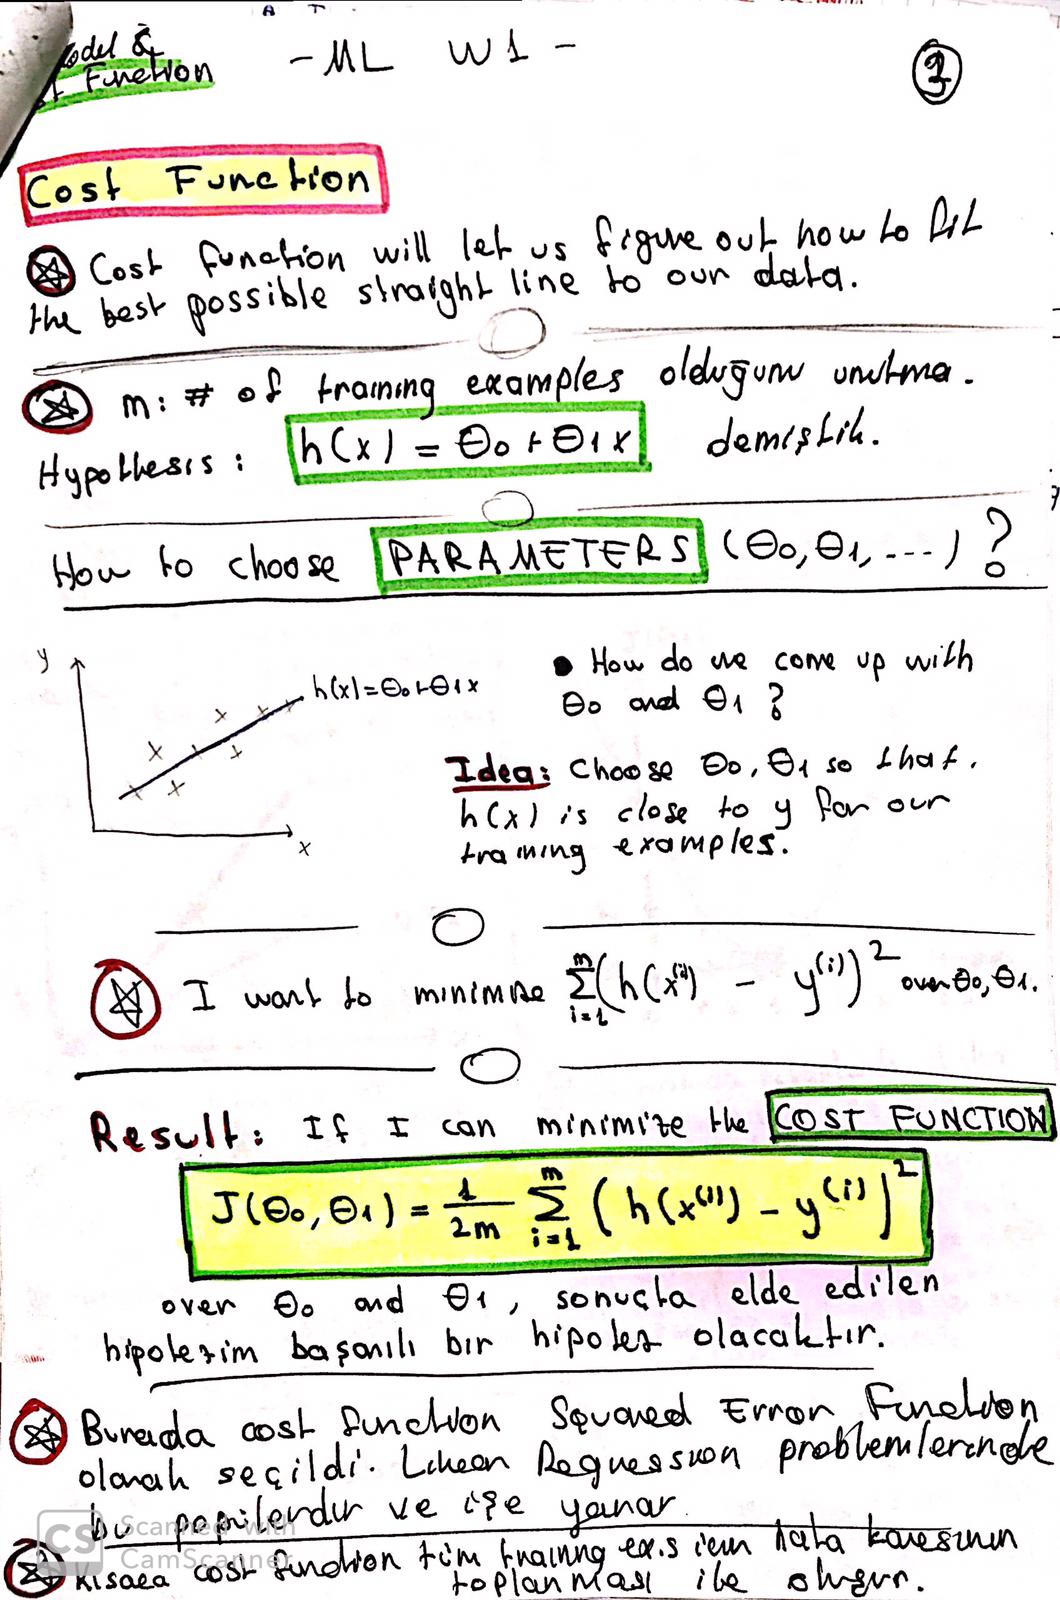 odel &
Function
- ML W1 -
1
Cost Function
Cost function will let us figure out how to fit
the best possible straight line to our data.
m: # of training examples olduğunu unutma.
Hypothesis: h(x) = θ0 + θ1 x demiştik.
How to choose PARAMETERS (θ0, θ1, ---) ?
y
h(x) = θ0 + θ1 x
x
• How do we come up with
θ0 and θ1 ?
Idea: Choose θ0, θ1 so that.
h(x) is close to y for our
training examples.
I want to minimize ∑_{i=1}^{m} (h(x^(i)) - y^(i))^2 over θ0, θ1.
Result: If I can minimize the COST FUNCTION
J(θ0, θ1) = 1/2m ∑_{i=1}^{m} (h(x^(i)) - y^(i))^2
over θ0 and θ1, sonuçta elde edilen
hipotezim başarılı bir hipotez olacaktır.
Burada cost function Squared Error Function
olarak seçildi. Linear Regression problemlerinde
bu popilerdir ve işe yarar.
Kısaca cost function tüm training ex.s için hata karesinin
toplanması ile oluşur.
CS Scanned with
CamScanner